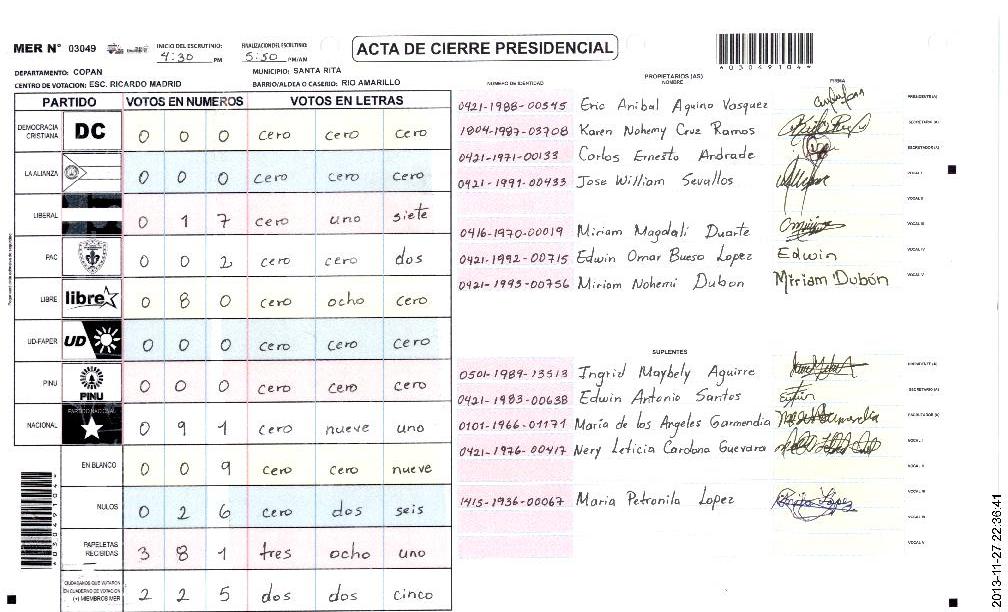 MER N° 03049
INICIO DEL ESCRUTINIO: 4:30 PM
FINALIZACION DEL ESCRUTINIO: 5:50 PM/AM
ACTA DE CIERRE PRESIDENCIAL
4030491044
DEPARTAMENTO: COPAN
MUNICIPIO: SANTA RITA
CENTRO DE VOTACION: ESC. RICARDO MADRID
BARRIO/ALDEA O CASERIO: RIO AMARILLO
PARTIDO VOTOS EN NUMEROS VOTOS EN LETRAS
DEMOCRACIA CRISTIANA DC 0 0 0 cero cero cero
LA ALIANZA 0 0 0 cero cero cero
LIBERAL 0 1 7 cero uno siete
PAC 0 0 2 cero cero dos
LIBRE libre 0 8 0 cero ocho cero
UD-FAPER UD 0 0 0 cero cero cero
PINU PINU 0 0 0 cero cero cero
NACIONAL PARTIDO NACIONAL 0 9 1 cero nueve uno
EN BLANCO 0 0 9 cero cero nueve
NULOS 0 2 6 cero dos seis
PAPELETAS RECIBIDAS 3 8 1 tres ocho uno
CIUDADANOS QUE VOTARON EN CUADERNO DE VOTACION (+) MIEMBROS MER 2 2 5 dos dos cinco
PROPIETARIOS (AS)
NUMERO DE IDENTIDAD NOMBRE FIRMA
0421-1988-00545 Eric Anibal Aquino Vasquez PRESIDENTE(A)
1804-1987-03708 Karen Nohemy Cruz Ramos SECRETARIO (A)
0421-1971-00133 Carlos Ernesto Andrade ESCRUTADOR (A)
0421-1991-00433 Jose William Sevallos VOCAL I
VOCAL II
0416-1970-00019 Miriam Magdali Duarte VOCAL III
0421-1992-00715 Edwin Omar Bueso Lopez Edwin VOCAL IV
0421-1993-00756 Miriam Nohemi Dubon Miriam Dubón VOCAL V
SUPLENTES
0501-1989-13513 Ingrid Maybely Aguirre PRESIDENTE (A)
0421-1983-00638 Edwin Antonio Santos SECRETARIO (A)
0101-1966-01171 Maria de los Angeles Garmendia ESCRUTADOR (A)
0421-1976-00417 Nery Leticia Cardona Guevara VOCAL I
VOCAL II
1415-1936-00067 Maria Petronila Lopez VOCAL III
VOCAL IV
VOCAL V
2013-11-27 22:36:41